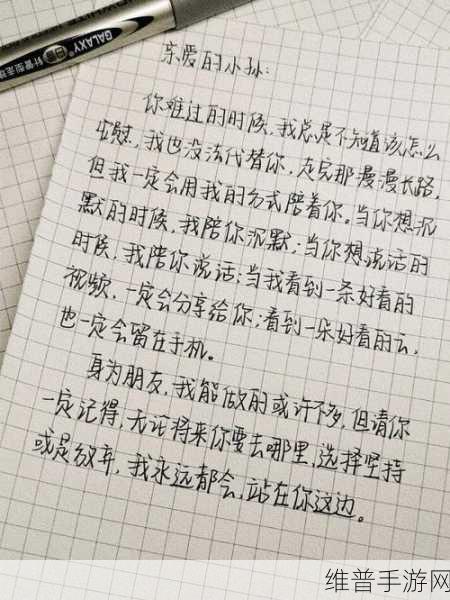 GALAXY
亲爱的小孙:
你难过的时候,我总是不知道该怎么
安慰,我也没法代替你,走完那漫漫长路,
但我一定会用我的方式陪着你。当你想沉
默的时候,我陪你沉默;当你想说话的
时候,我陪你说话;当我看到一条好看的
视频,一定会分享给你;看到一朵好看的云,
也一定会留在手机。
身为朋友,我能做的或许不多,但请你
一定记得,无论将来你要去哪里,选择坚持
或是放弃,我永远都会,站在你这边。
维普手游网